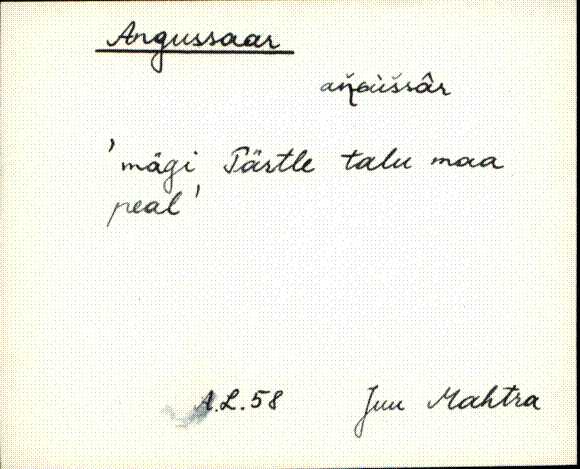 Angussaar
'mägi Pärtle talu maa
peal'
A.L.58 Juu Mahtra